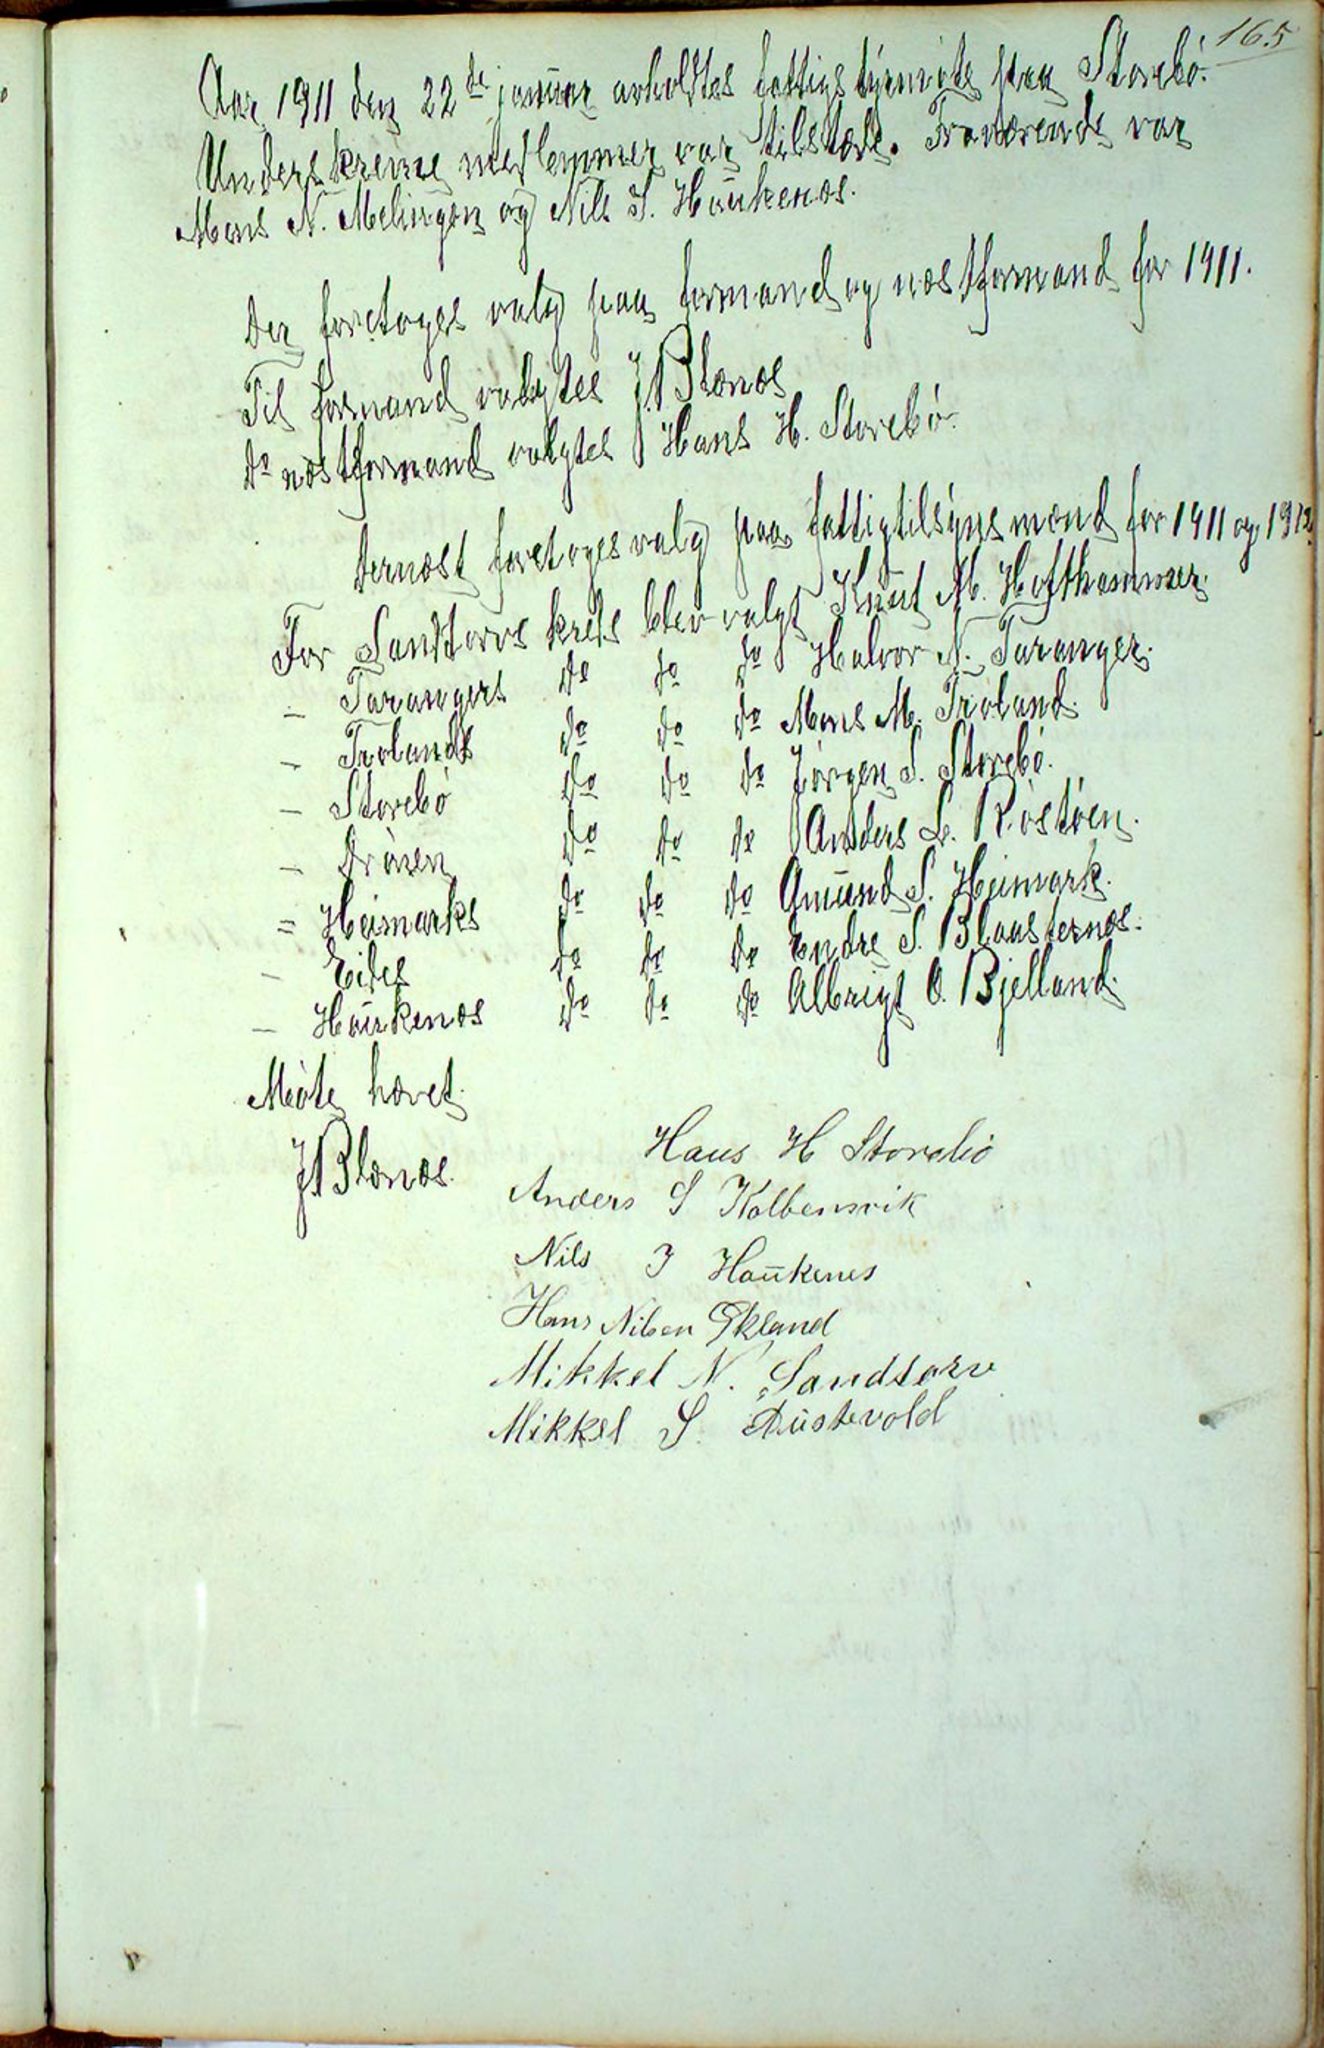 165
Aar 1911 den 22de januar avholdtes fattigstyrmøte paa Storebø.
Underskrevne medlemmer var tilstæde. Fraværende var
Mons N. Melingen og Nils J. Haukenæs.
Der foretoges valg paa formand og næstformand for 1911.
Til formand valgtes J. Blænæs
do næstformand valgtes Hans H. Storebø.
Dernæst foretoges valg paa fattigtilsynsmænd for 1911 og 1912.
For Sandtorvs kreds blev valgt Knut M. Hofthammer.
- Tarangers do do do Halvor N. Taranger.
- Trølands do do do Mons M. Trøland.
- Storebø do do do Jørgen S. Storebø.
- Drønen do do do Anders L. Røstøen.
= Heimarks do do do Amund S. Heimark.
- Eides do do do Endre S. Blaasternæs.
- Haukenæs do do do Albrigt O. Bjelland.
Møte hævet.
J. Blænæs.
Hans H Storebø
Anders S Kolbensvik
Nils J Haukenes
Hans Nilsen Økland
Mikkel N. Sandtorv
Mikkel S. Austevold